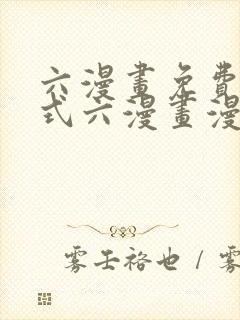 六漫畫免費
式六漫畫漫
雾壬袼也 / 雾